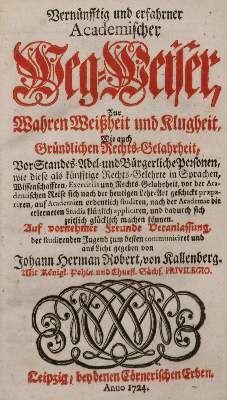 Vernünfftig und erfahrner
Academischer
Weg-Weiser,
Zur
Wahren Weißheit und Klugheit,
Wie auch
Gründlichen Rechts-Gelahrheit,
Vor Standes-Adel-und Bürgerliche Personen,
wie diese als künfftige Rechts-Gelehrte in Sprachen,
Wissenschafften, Exercitiis und Rechts-Gelahrheit, vor der Aca-
demischen Reise sich nach der heutigen Lehr-Art geschickt præpa-
riren, auf Academien ordentlich studiren, nach der Academie die
erlerneten Studia füglich appliciren, und dadurch sich
zeitlich glücklich machen können.
Auf vornehmer Freunde Veranlassung,
der studirenden Jugend zum besten communiciret und
ans Licht gegeben von
Johann Herman Robert, von Kallenberg.
Mit Königl. Pohln. und Churfl. Sächs. PRIVILEGIO.
Leipzig, bey denen Cörnerischen Erben.
Anno 1724.